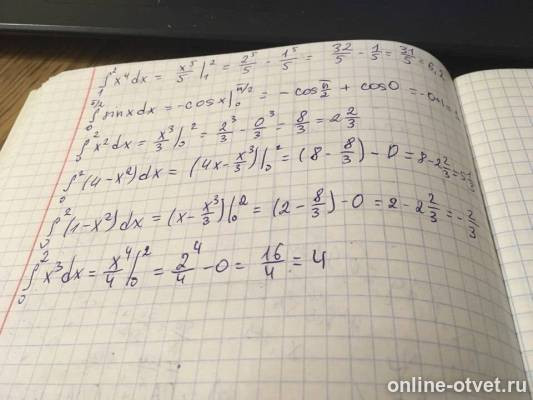 ∫₁² x⁴dx = x⁵/5 |₁² = 2⁵/5 - 1⁵/5 = 32/5 - 1/5 = 31/5 = 6,2
∫₀^(π/2) sinxdx = -cosx|₀^(π/2) = -cos π/2 + cos0 = -0+1=1
∫₀² x²dx = x³/3 |₀² = 2³/3 - 0³/3 = 8/3 = 2 2/3
∫₀² (4-x²)dx = (4x - x³/3)|₀² = (8 - 8/3) - 0 = 8 - 2 2/3 = 5 1/3
∫₀² (1-x²)dx = (x - x³/3)|₀² = (2 - 8/3) - 0 = 2 - 2 2/3 = -2/3
∫₀² x³dx = x⁴/4 |₀² = 2⁴/4 - 0 = 16/4 = 4
online-otvet.ru